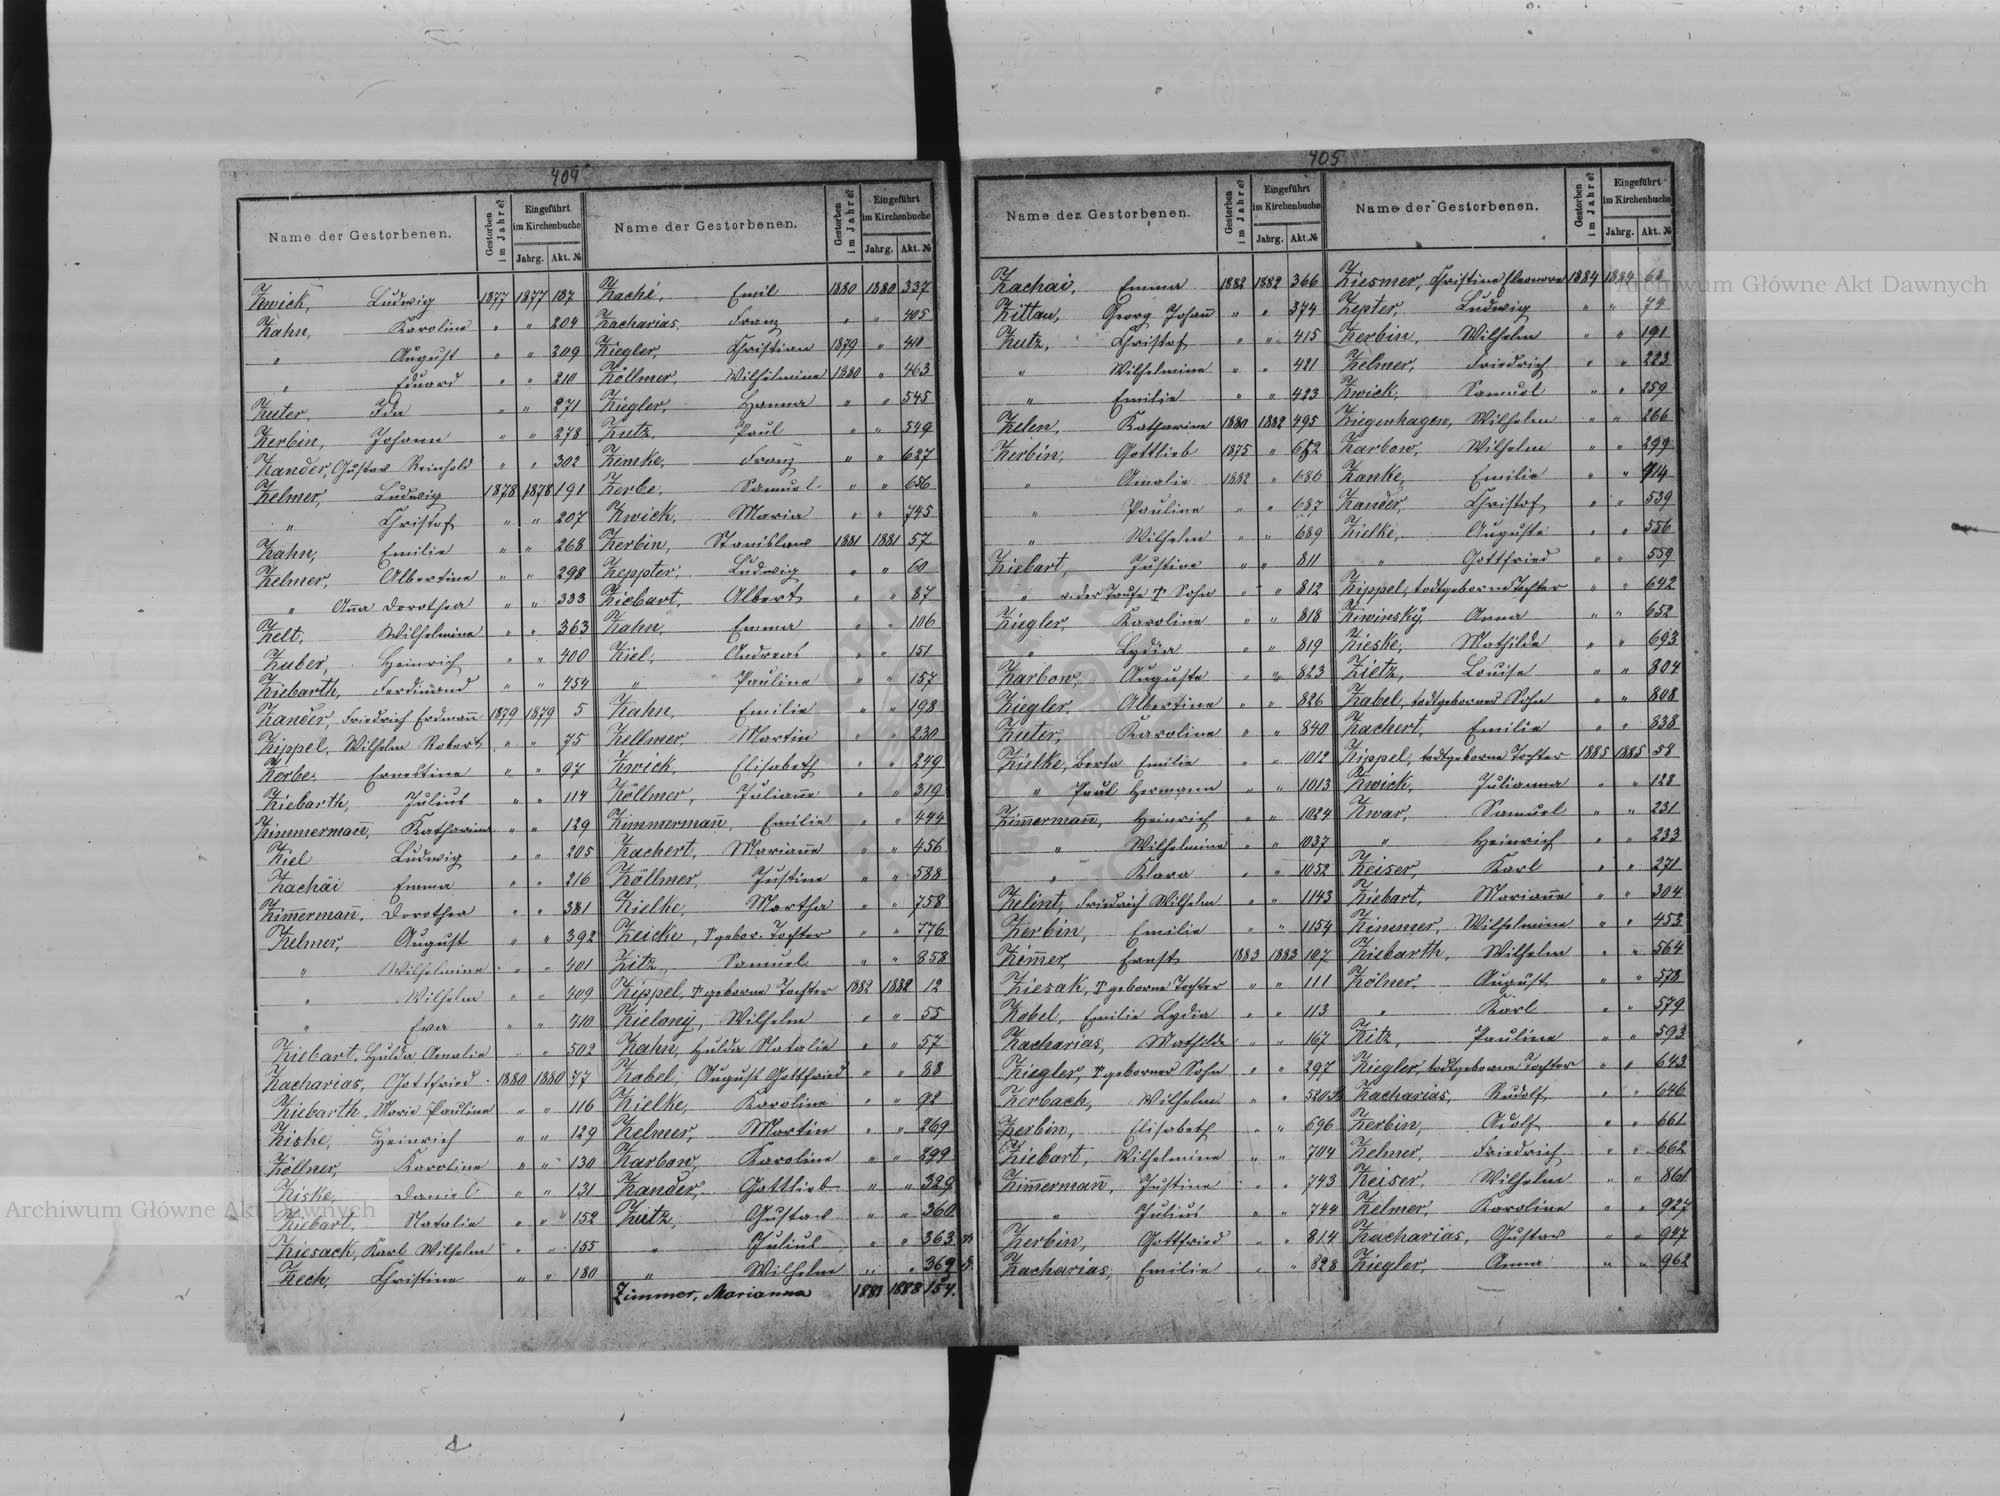 404
Name der Gestorbenen. Gestorben im Jahre? Eingeführt im Kirchenbuche Jahrg. Akt. №
Zwick, Ludwig 1877 1877 187
Zahn, Karoline " " 204
" August " " 209
" Eduard " " 210
Zuter, Ida " " 271
Zerbin, Johann " " 278
Zander, Gustav Reinhold " " 302
Zelmer, Ludwig 1878 1878 191
" Christof " " 207
Zahn, Emilie " " 268
Zelmer, Albertine " " 298
" Anna Dorothea " " 333
Zelt, Wilhelmine " " 363
Zuber, Heinrich " " 400
Ziebarth, Ferdinand " " 454
Zander, Friedrich Erdmann 1879 1879 5
Zippel, Wilhelm Robert " " 75
Zerbe, Ernestine " " 97
Ziebarth, Julius " " 114
Zimmermann, Katharina " " 129
Ziel Ludwig " " 205
Zachäi Emma " " 216
Zimmermann, Dorothea " " 381
Zelmer, August " " 392
" Wilhelmine " " 401
" Wilhelm " " 409
" Eva " " 410
Ziebart, Hulda Amalie " " 502
Zacharias, Gottfried 1880 1880 77
Ziebarth, Marie Pauline " " 116
Ziske, Heinrich " " 129
Zöllner, Karoline " " 130
Ziske, Daniel " " 131
Ziebart, Natalie " " 152
Ziesack, Karl Wilhelm " " 155
Zech, Christine " " 180
Name der Gestorbenen. Gestorben im Jahre? Eingeführt im Kirchenbuche Jahrg. Akt. №
Zaché, Emil 1880 1880 337
Zacharias, Franz " " 405
Ziegler, Christian 1879 " 410
Zöllmer, Wilhelmine 1880 " 463
Ziegler, Hanna " " 545
Zutz, Paul " " 549
Zemke, Franz " " 627
Zerbe, Samuel " " 656
Zwick, Maria " " 745
Zerbin, Stanislaus 1881 1881 57
Zeppter, Ludwig " " 60
Ziebart, Albert " " 87
Zahn, Emma " " 106
Ziel, Andreas " " 151
" Pauline " " 157
Zahn, Emilie " " 198
Zellmer, Martin " " 230
Zwick, Elisabeth " " 249
Zöllmer, Julianne " " 319
Zimmermann, Emilie " " 444
Zachert, Marianne " " 456
Zöllmer, Justine " " 588
Zielke, Martha " " 758
Zeicke, † gebor. Tochter " " 776
Zitz, Samuel " " 858
Zippel, † geborne Tochter 1882 1882 12
Zielony, Wilhelm " " 55
Zahn, Hulda Natalie " " 57
Zobel, August Gottfried " " 88
Zielke, Karoline " " 92
Zelmer, Martin " " 269
Zarbow, Karoline " " 299
Zander, Gottlieb " " 329
Zutz, Gustav " " 360
" Julius " " 363
" Wilhelm " " 369
Zimmer, Marianna 1881 1888 154.
405
Name der Gestorbenen. Gestorben im Jahre? Eingeführt im Kirchenbuche Jahrg. Akt. №
Zachai, Emma 1882 1882 366
Zittau, Georg Johann " " 374
Zutz, Christof " " 415
" Wilhelmine " " 421
" Emilie " " 423
Zelen, Katharine 1880 1882 495
Zerbin, Gottlieb 1875 " 652
" Amalie 1882 " 686
" Pauline " " 687
" Wilhelm " " 689
Ziebart, Justine " " 811
" v. der Taufe † Sohn " " 812
Ziegler, Karoline " " 818
" Lydia " " 819
Zarbow, Auguste " " 823
Ziegler, Albertine " " 826
Zuter, Karoline " " 840
Zielke, Berta Emilie " " 1012
" Paul Hermann " " 1013
Zimmermann, Heinrich " " 1024
" Wilhelmine " " 1037
" Klara " " 1052
Zelint, Friedrich Wilhelm " " 1143
Zerbin, Emilie " " 1154
Zimmer, Ernst 1883 1883 107
Ziesak, † geborne Tochter " " 111
Zobel, Emilie Lydia " " 113
Zacharias, Mathilde " " 167
Ziegler, † geborner Sohn " " 297
Zerbach, Wilhelm " " 520
Zerbin, Elisabeth " " 696
Ziebart, Wilhelmine " " 704
Zimmermann, Justine " " 743
" Julius " " 744
Zerbin, Gottfried " " 814
Zacharias, Emilie " " 828
Name der Gestorbenen. Gestorben im Jahre? Eingeführt im Kirchenbuche Jahrg. Akt. №
Ziesmer, Christine Eleonore 1884 1884 68
Zepter, Ludwig " " 74
Zerbin, Wilhelm " " 191
Zelmer, Friedrich " " 223
Zwick, Samuel " " 259
Ziegenhagen, Wilhelm " " 266
Zarbow, Wilhelm " " 299
Zanke, Emilie " "
Zander, Christof " " 539
Zielke, Auguste " " 556
" Gottfried " " 559
Zippel, todtgeborne Tochter " " 642
Ziwinsky, Anna " " 652
Zieske, Mathilde " " 693
Zietz, Louise " " 804
Zabel, todtgeborner Sohn " " 808
Zachert, Emilie " " 838
Zippel, todtgeborne Tochter 1885 1885 58
Zwick, Julianna " " 128
Zwar, Samuel " " 231
" Heinrich " " 233
Zeiser, Karl " " 271
Ziebart, Marianne " " 304
Zimmer, Wilhelmine " " 453
Ziebarth, Wilhelm " " 564
Zölner, August " " 578
" Karl " " 579
Zitz, Pauline " " 593
Ziegler, todtgeborne Tochter " " 643
Zacharias, Rudolf " " 646
Zerbin, Adolf " " 661
Zelmer, Friedrich " " 662
Zeiser, Wilhelm " " 861
Zelmer, Karoline " " 927
Zacharias, Gustav " " 947
Ziegler, Anna " " 962
Archiwum Główne Akt Dawnych
Archiwum Główne Akt Dawnych